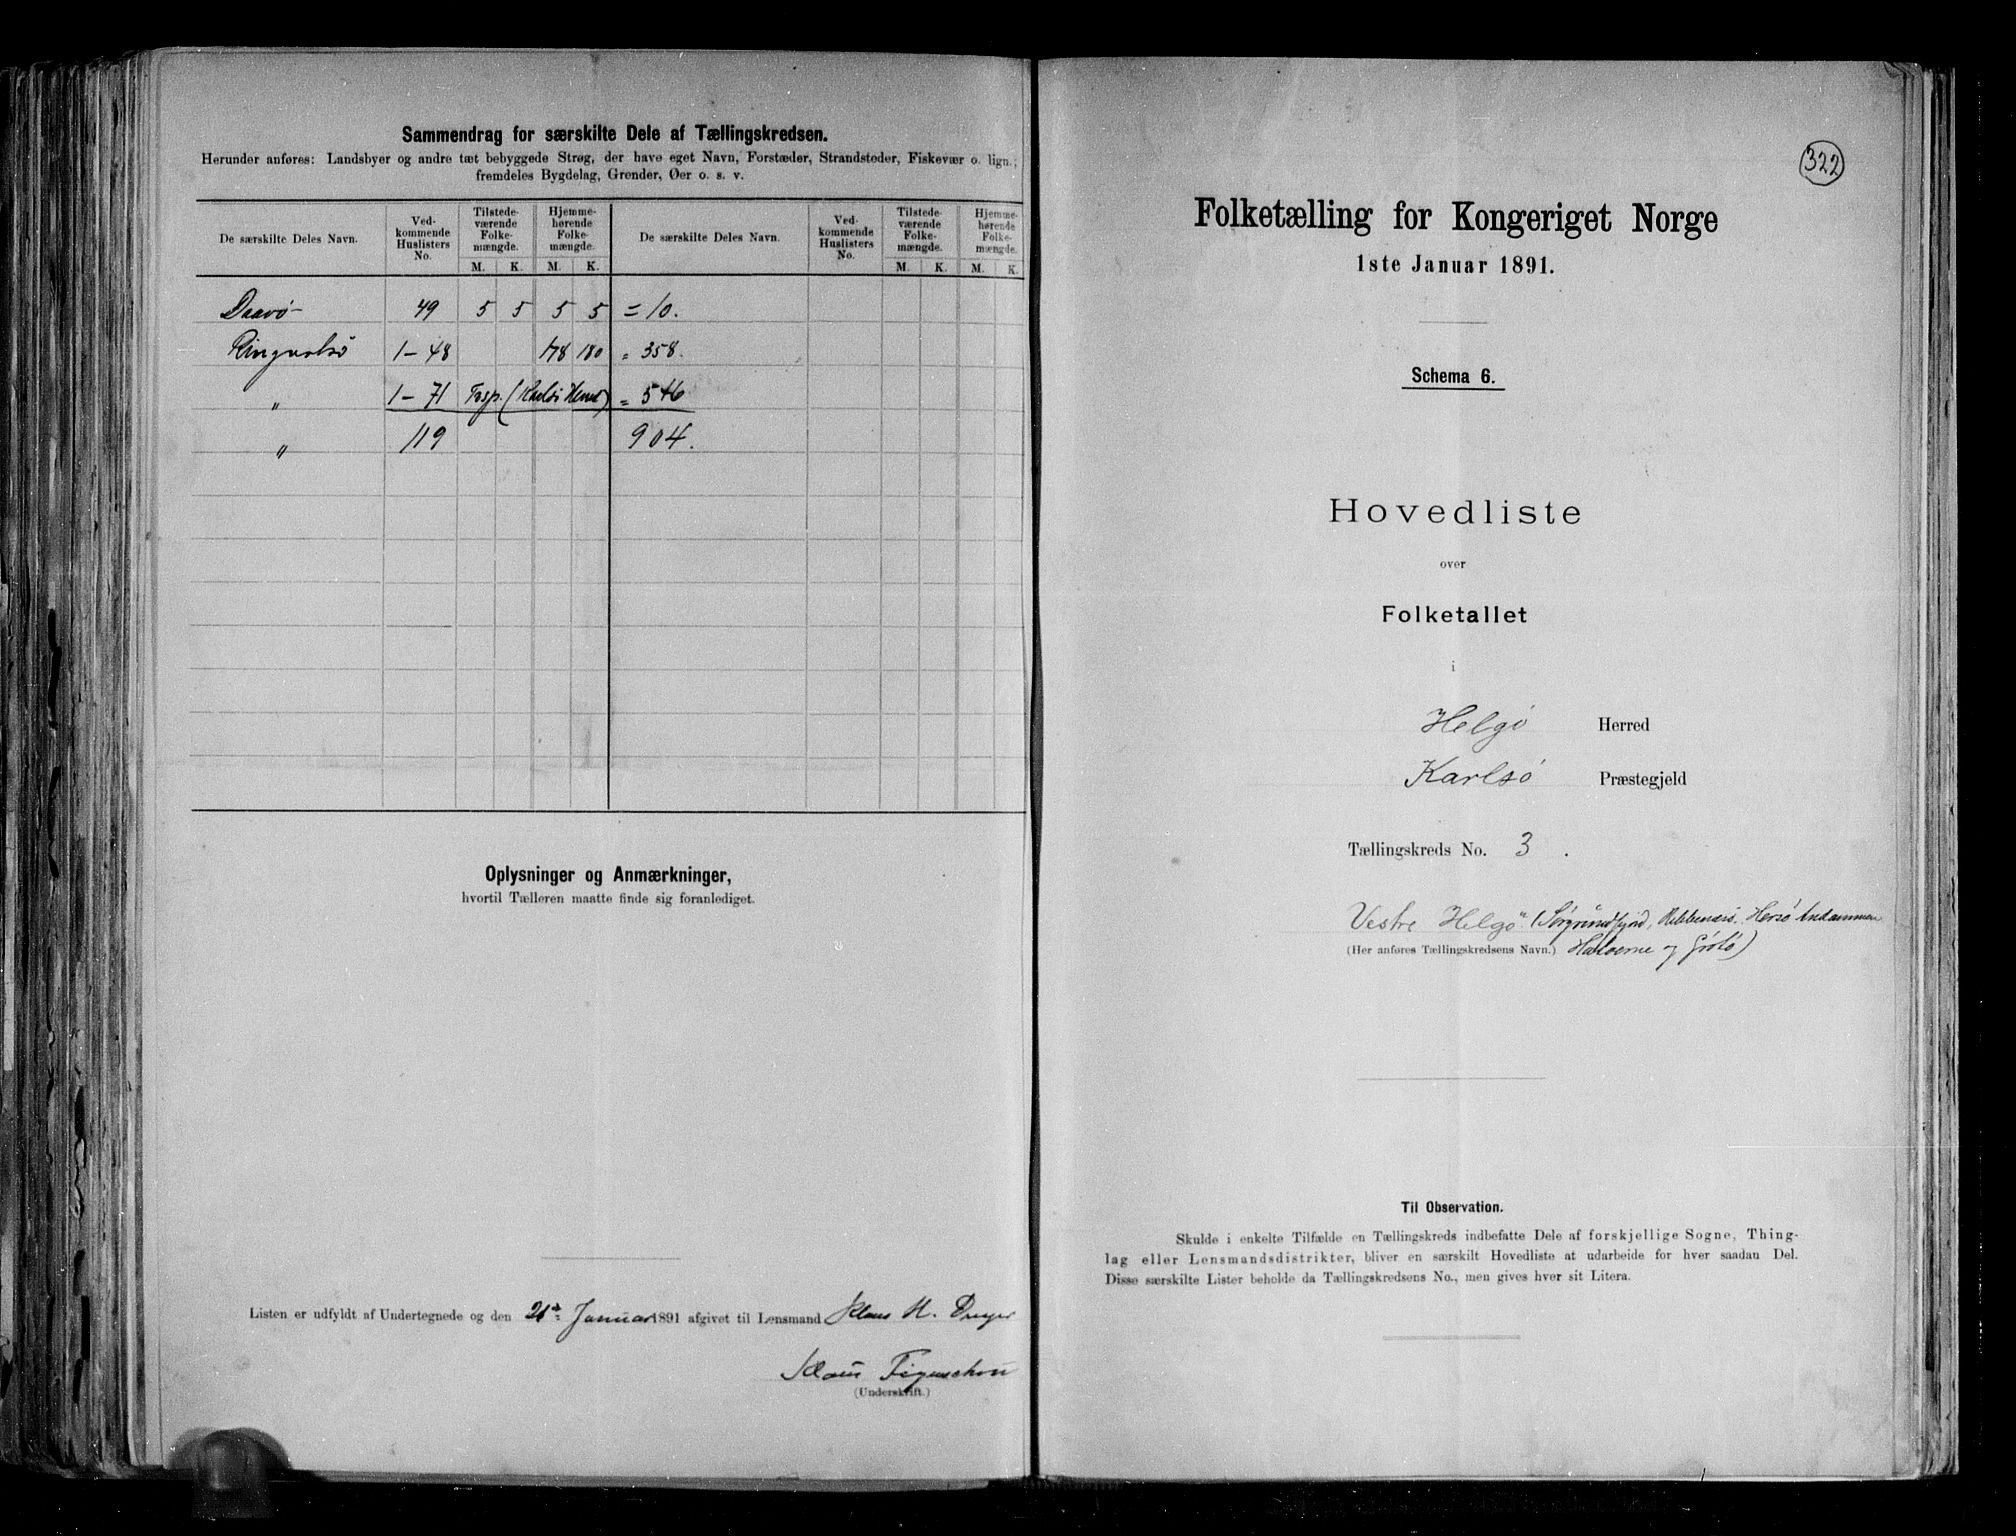 Sammendrag for særskilte Dele af Tællingskredsen.
Herunder anføres: Landsbyer og andre tæt bebyggede Strøg, der have eget Navn, Forstæder, Strandsteder, Fiskevær o. lign.;
fremdeles Bygdelag, Grender, Øer o. s. v.
De særskilte Deles Navn. Ved-kommende Huslisters No. Tilstede-værende Folke-mængde. Hjemme-hørende Folke-mængde. De særskilte Deles Navn. Ved-kommende Huslisters No. Tilstede-værende Folke-mængde. Hjemme-hørende Folke-mængde.
M. K. M. K. M. K. M. K.
Daavø 49 5 5 5 5 = 10.
Ringvatsø 1-48 178 180 = 358.
" 1-71 (Karlsø Herred) = 546
" 119 904.
Oplysninger og Anmærkninger,
hvortil Tælleren maatte finde sig foranlediget.
Listen er udfyldt af Undertegnede og den 21de Januar 1891 afgivet til Lensmand Klaus H. Dreyer
Klaus Figenschou
(Underskrift.)
322
Folketælling for Kongeriget Norge
1ste Januar 1891.
Schema 6.
Hovedliste
over
Folketallet
i
Helgø Herred
Karlsø Præstegjeld
Tællingskreds No. 3.
Vestre Helgø (Sørgrundfjord, Rebbenesø, Hersø Andammen
(Her anføres Tællingskredsens Navn.) og Grøtø)
Til Observation.
Skulde i enkelte Tilfælde en Tællingskreds indbefatte Dele af forskjellige Sogne, Thing-
lag eller Lensmandsdistrikter, bliver en særskilt Hovedliste at udarbeide for hver saadan Del.
Disse særskilte Lister beholde da Tællingskredsens No., men gives hver sit Litera.